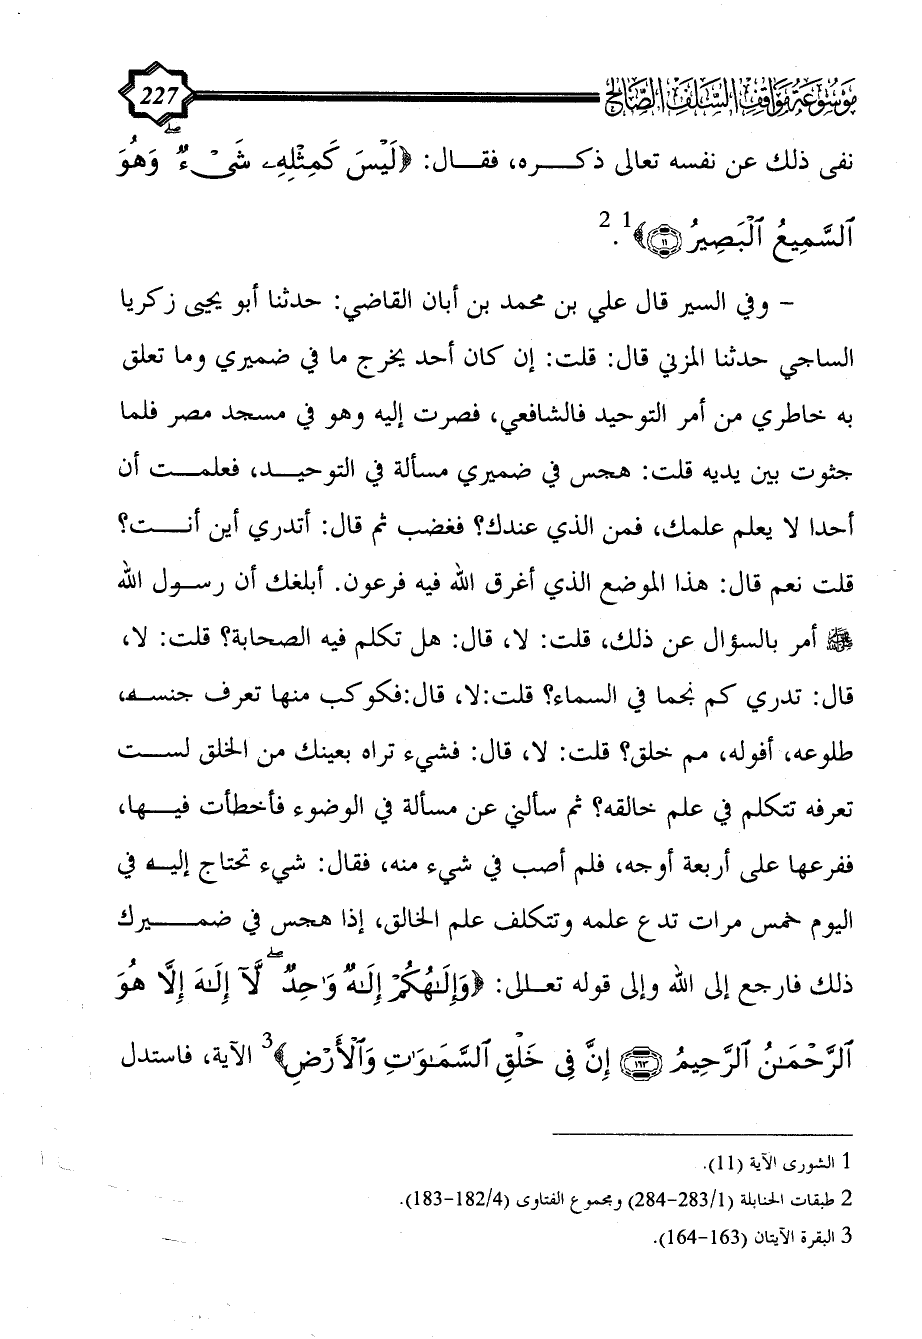 موسوعة مواقف السلف الصالح
227
نفى ذلك عن نفسه تعالى ذكـــره، فقـــال: ﴿لَيْسَ كَمِثْلِهِۦ شَىْءٌۖ وَهُوَ
ٱلسَّمِيعُ ٱلْبَصِيرُ ۝١١﴾1.2
– وفي السير قال علي بن محمد بن أبان القاضي: حدثنا أبو يحيى زكريا
الساجي حدثنا المزني قال: قلت: إن كان أحد يخرج ما في ضميري وما تعلق
به خاطري من أمر التوحيد فالشافعي، فصرت إليه وهو في مسجد مصر فلما
جثوت بين يديه قلت: هجس في ضميري مسألة في التوحيـــد، فعلمـــت أن
أحدا لا يعلم علمك، فمن الذي عندك؟ فغضب ثم قال: أتدري أين أنـــت؟
قلت نعم قال: هذا الموضع الذي أغرق الله فيه فرعون. أبلغك أن رسول الله
ﷺ أمر بالسؤال عن ذلك، قلت: لا، قال: هل تكلم فيه الصحابة؟ قلت: لا،
قال: تدري كم نجما في السماء؟ قلت:لا، قال:فكوكب منها تعرف جنســه،
طلوعه، أفوله، مم خلق؟ قلت: لا، قال: فشيء تراه بعينك من الخلق لســـت
تعرفه تتكلم في علم خالقه؟ ثم سألني عن مسألة في الوضوء فأخطأت فيـــها،
ففرعها على أربعة أوجه، فلم أصب في شيء منه، فقال: شيء تحتاج إليــه في
اليوم خمس مرات تدع علمه وتتكلف علم الخالق، إذا هجس في ضمـــــيرك
ذلك فارجع إلى الله وإلى قوله تعــالى: ﴿وَإِلَٰهُكُمْ إِلَٰهٌ وَٰحِدٌۖ لَّآ إِلَٰهَ إِلَّا هُوَ
ٱلرَّحْمَٰنُ ٱلرَّحِيمُ ۝١٦٣ إِنَّ فِى خَلْقِ ٱلسَّمَٰوَٰتِ وَٱلْأَرْضِ﴾3 الآية، فاستدل
1 الشورى الآية (11).
2 طبقات الحنابلة (283/1-284) ومجموع الفتاوى (182/4-183).
3 البقرة الآيتان (163-164).